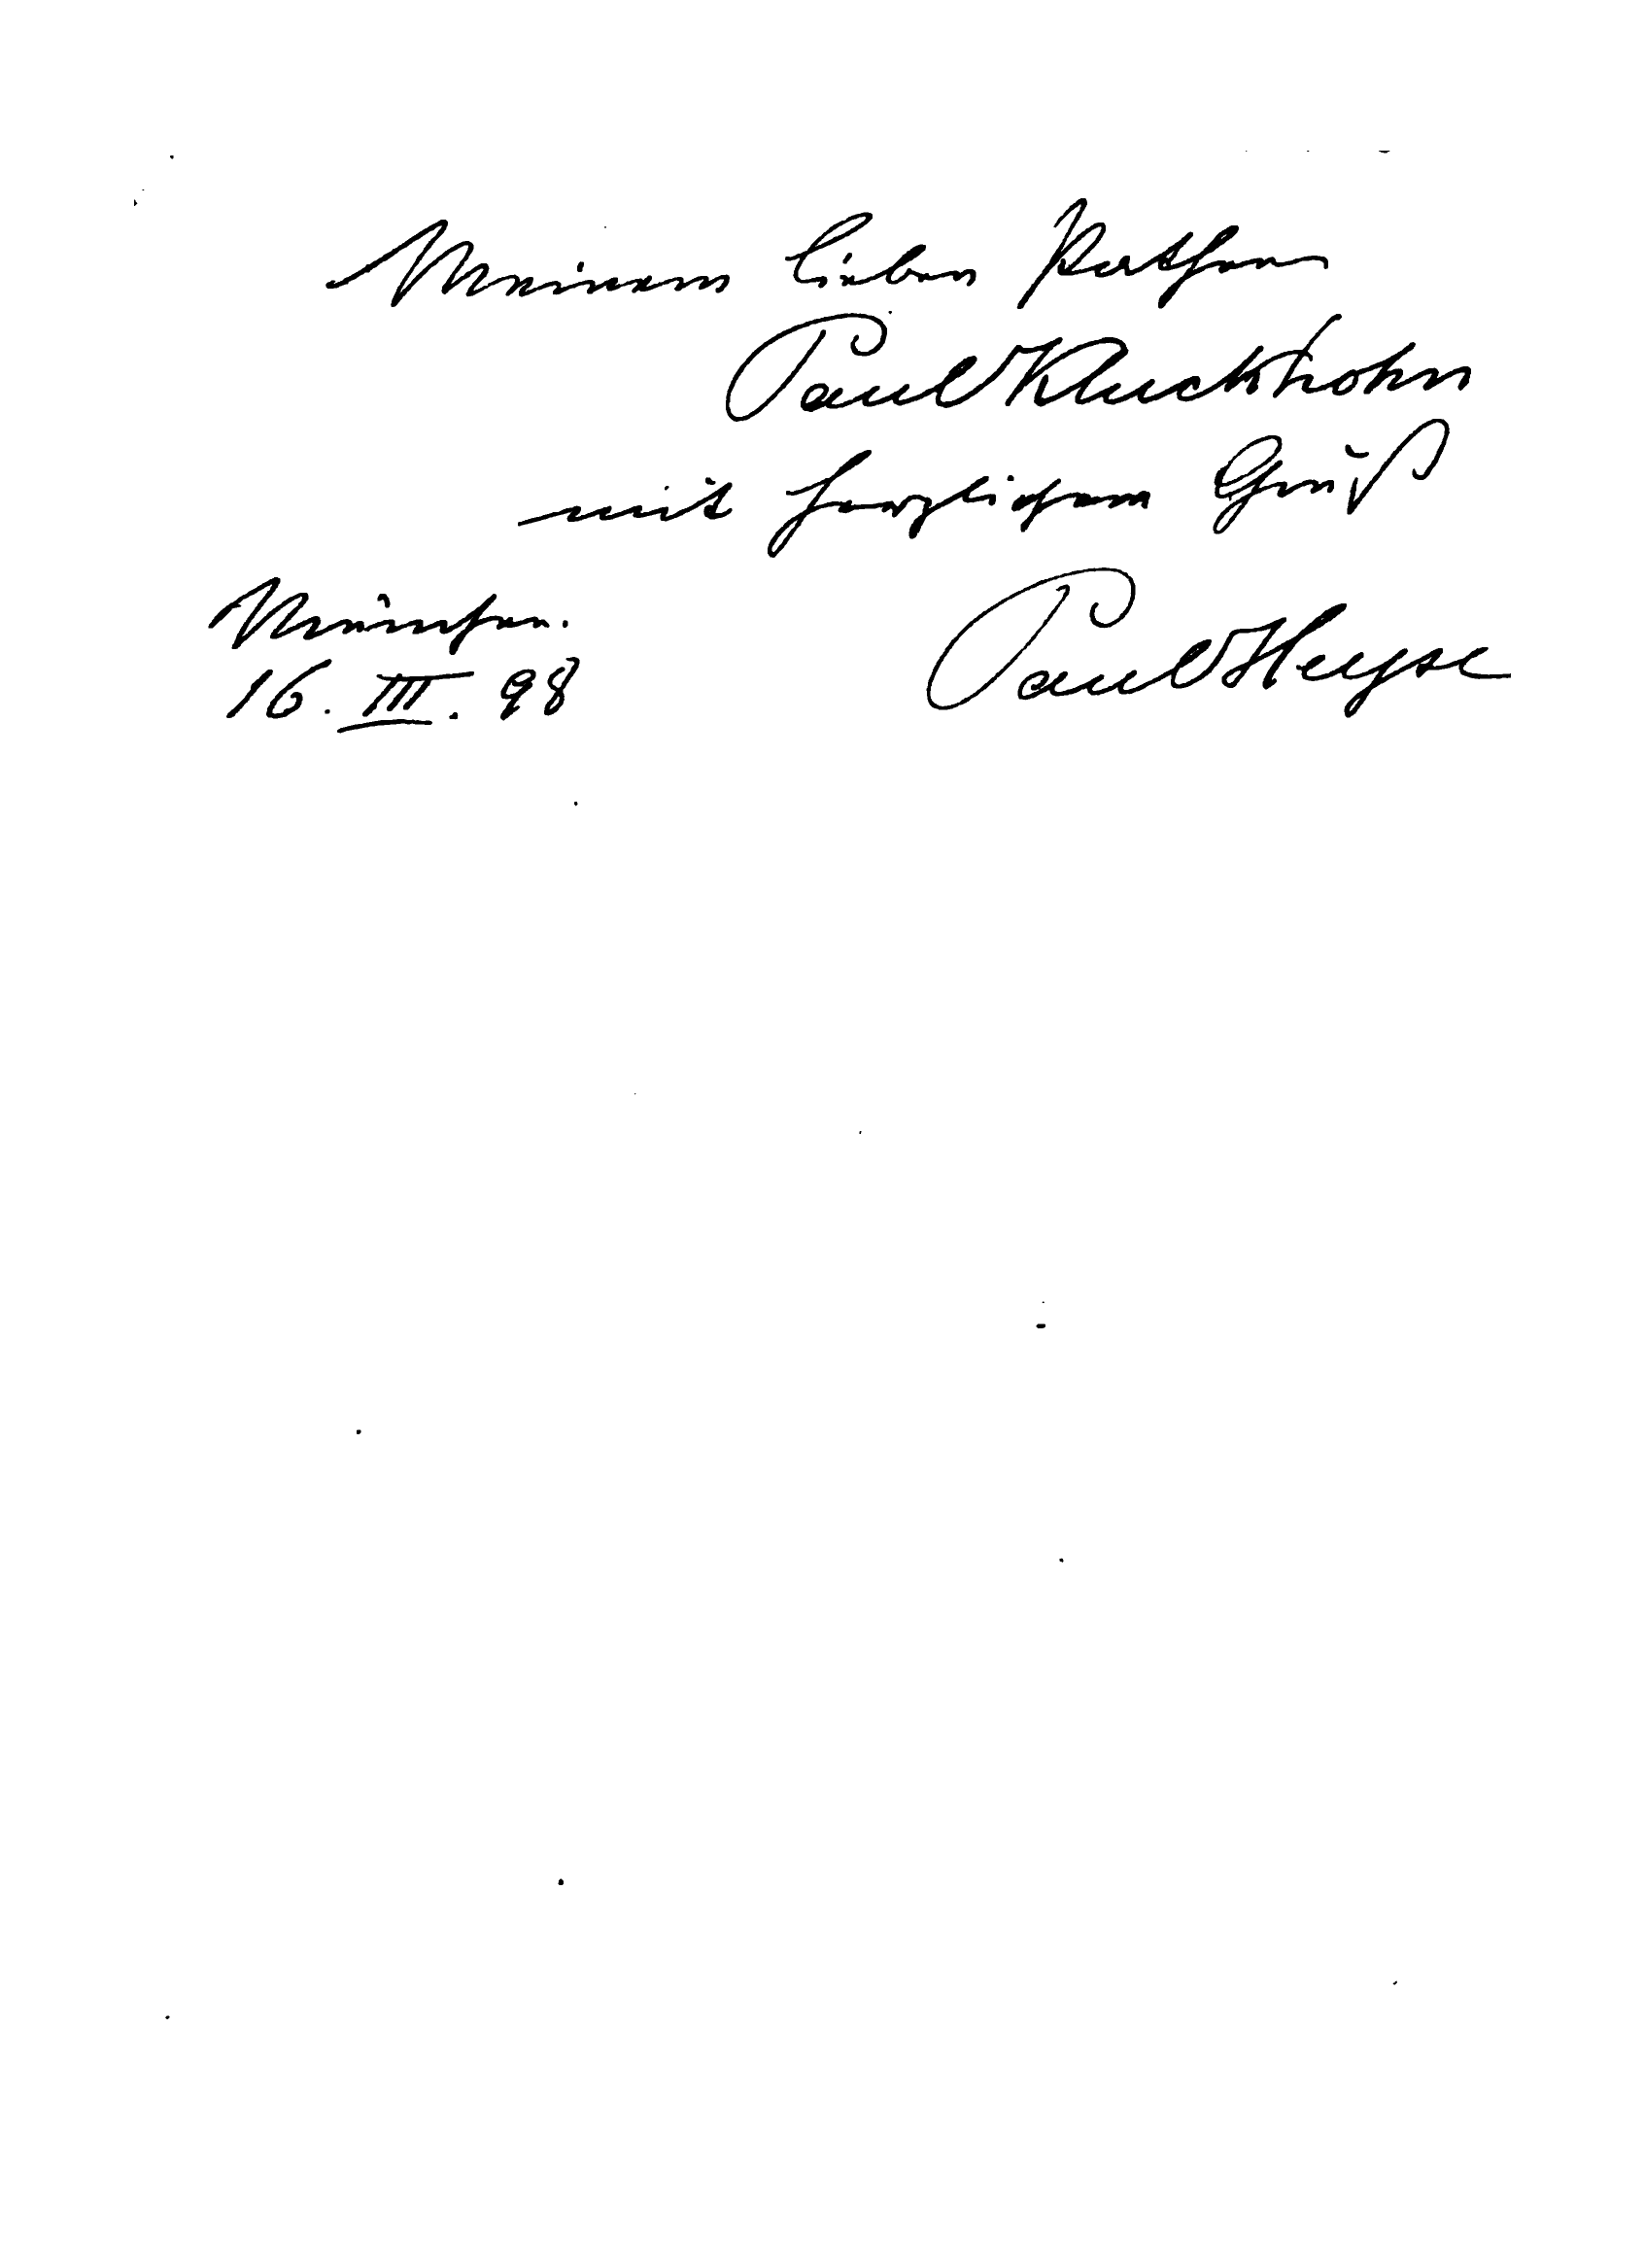 Meinem lieben Pathen
Paul Kluckhohn
mit herzlichem Gruß
München.
16. III. 98
Paul Heyse